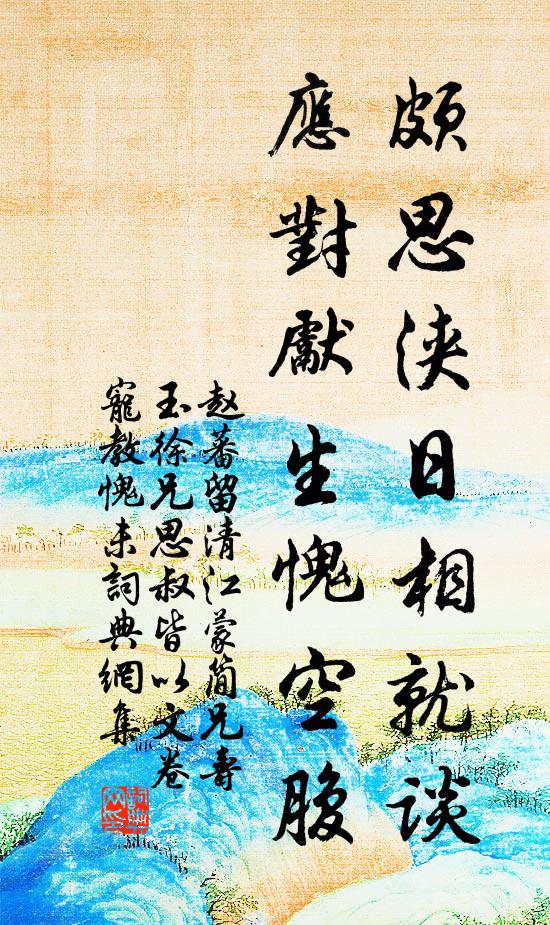 頗思浹日相就談
應對獻生愧空腹
赵蕃留清江蒙简兄壽
玉徐兄思叔皆以文卷
寵教愧未詞典網集